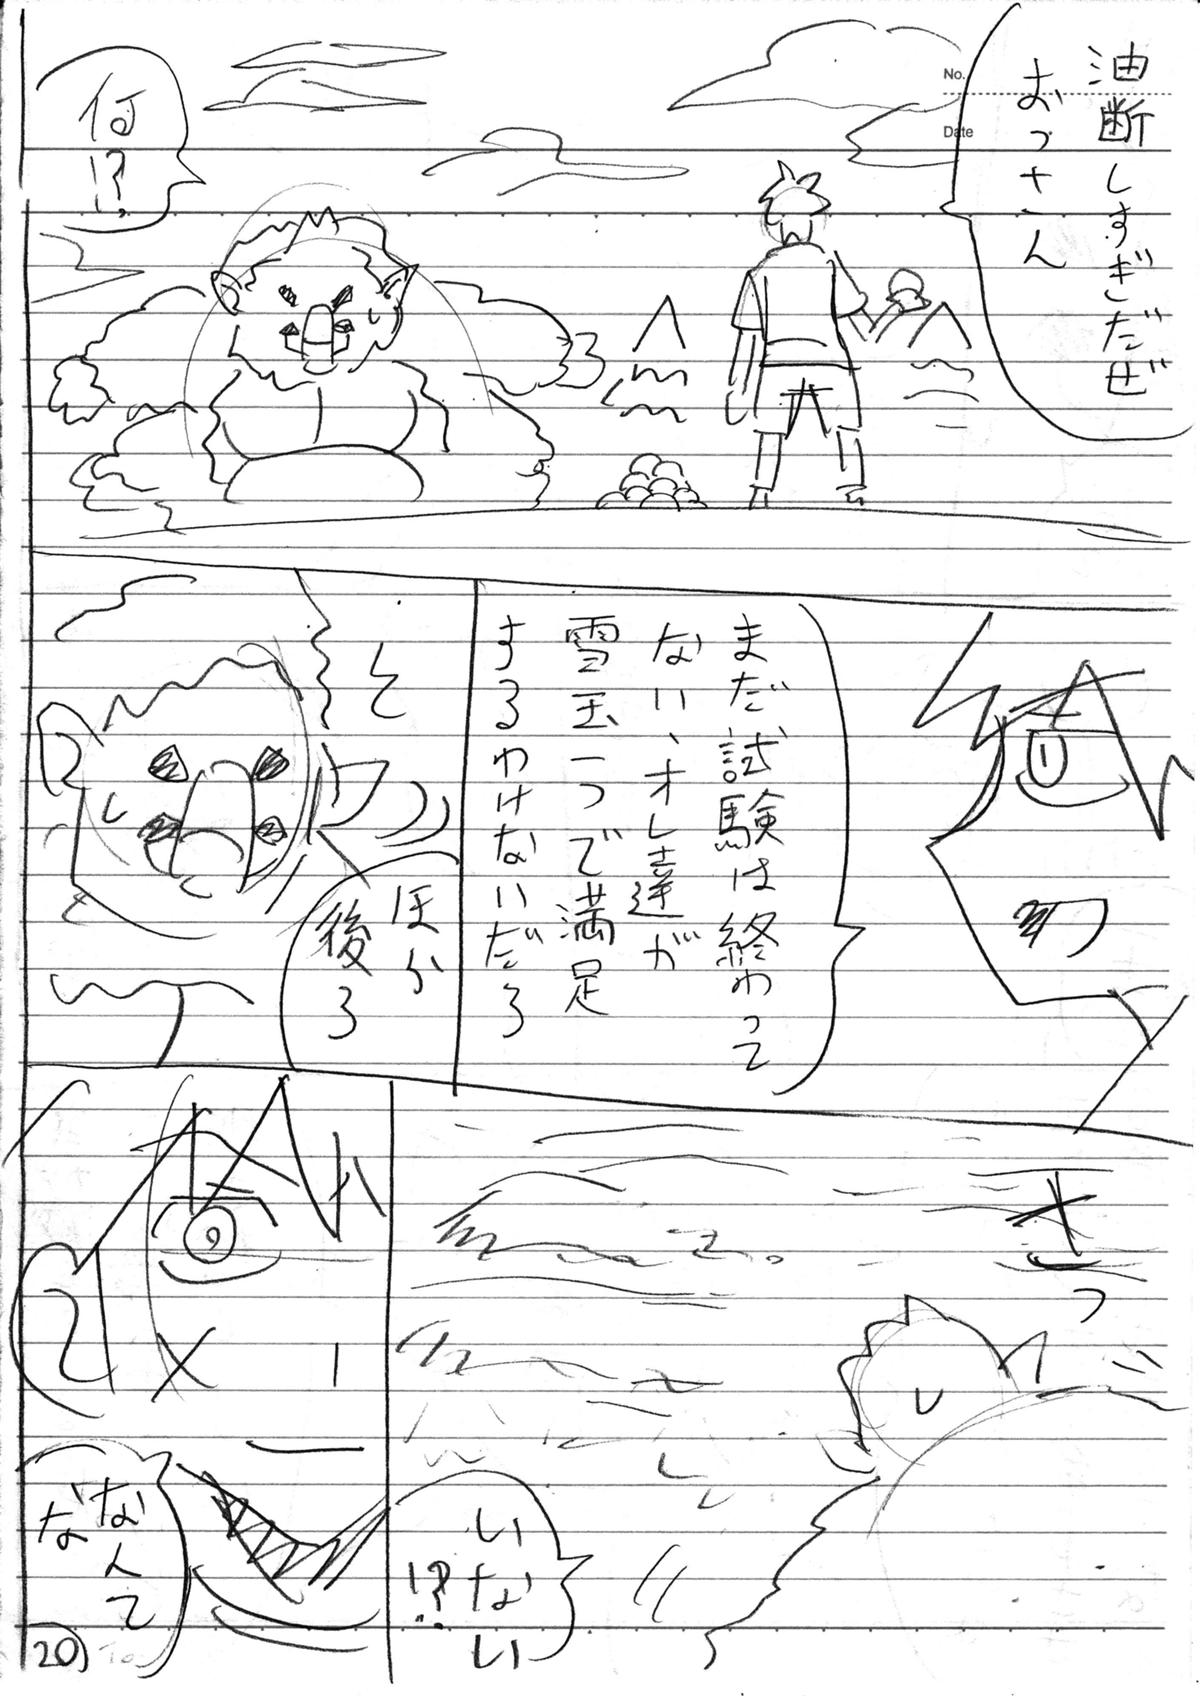 No.
Date
油断しすぎだぜ
おっさん
何!?
まだ試験は終わって
ない、オレ達が
雪玉一つで満足
するわけないだろ
ほら
後ろ
さっ
いない
!?
なんて
な
20